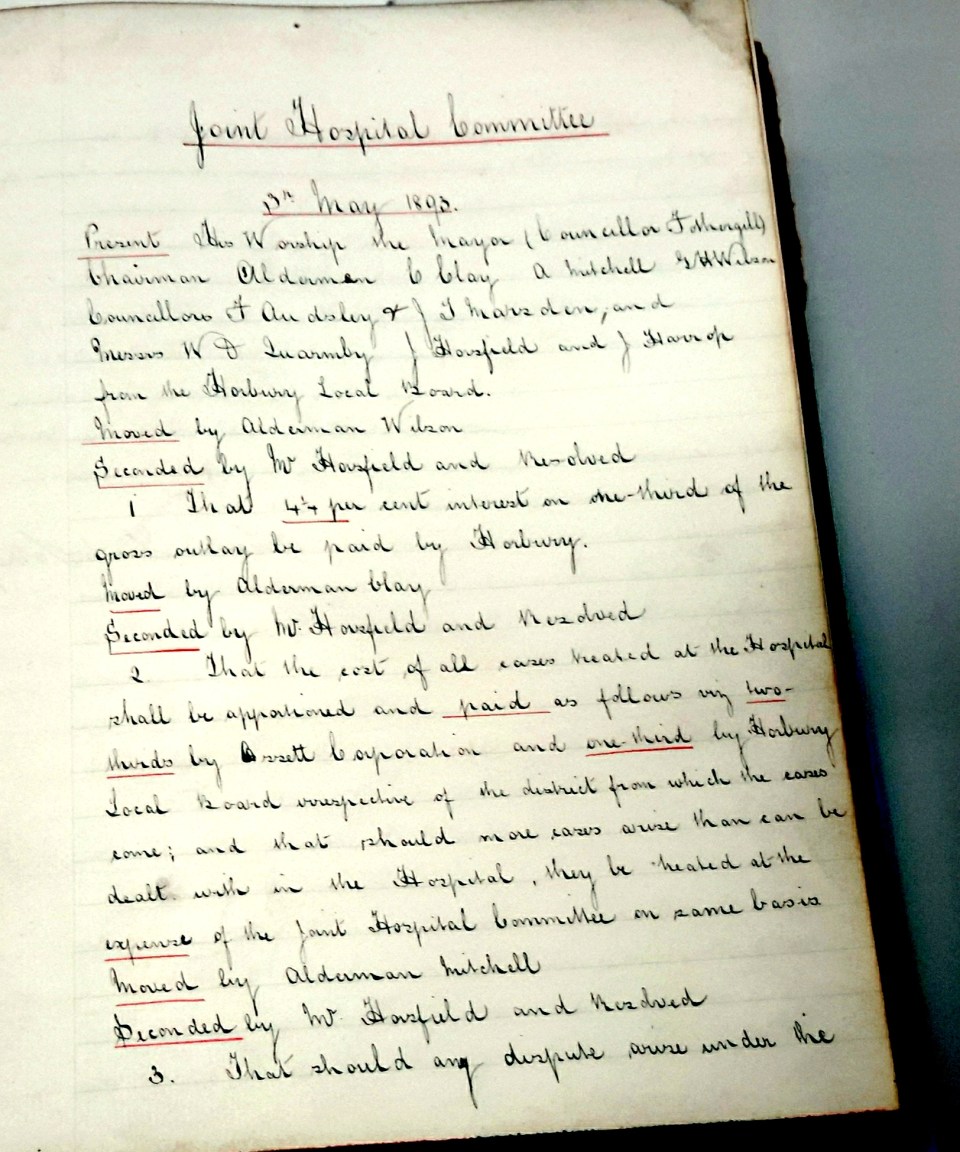 Joint Hospital Committee
3rd May 1893.
Present His Worship the Mayor (Councillor Fothergill)
Chairman Aldermen C Clay A Mitchell G H Wilson
Councillors F Audsley & J T Marsden, and
Messrs W D Quarmby J Horsfield and J Harrop
from the Horbury Local Board.
Moved by Alderman Wilson
Seconded by Mr Horsfield and Resolved
1 That 4¼ per cent interest on one-third of the
gross outlay be paid by Horbury.
Moved by Alderman Clay
Seconded by Mr. Horsfield and Resolved
2. That the cost of all cases treated at the Hospital
shall be apportioned and paid as follows viz two-
thirds by Ossett Corporation and one-third by Horbury
Local Board irrespective of the district from which the cases
come; and that should more cases arise than can be
dealt with in the Hospital, they be treated at the
expense of the Joint Hospital Committee on same basis
Moved by Alderman Mitchell
Seconded by Mr. Horsfield and Resolved
3. That should any dispute arise under the